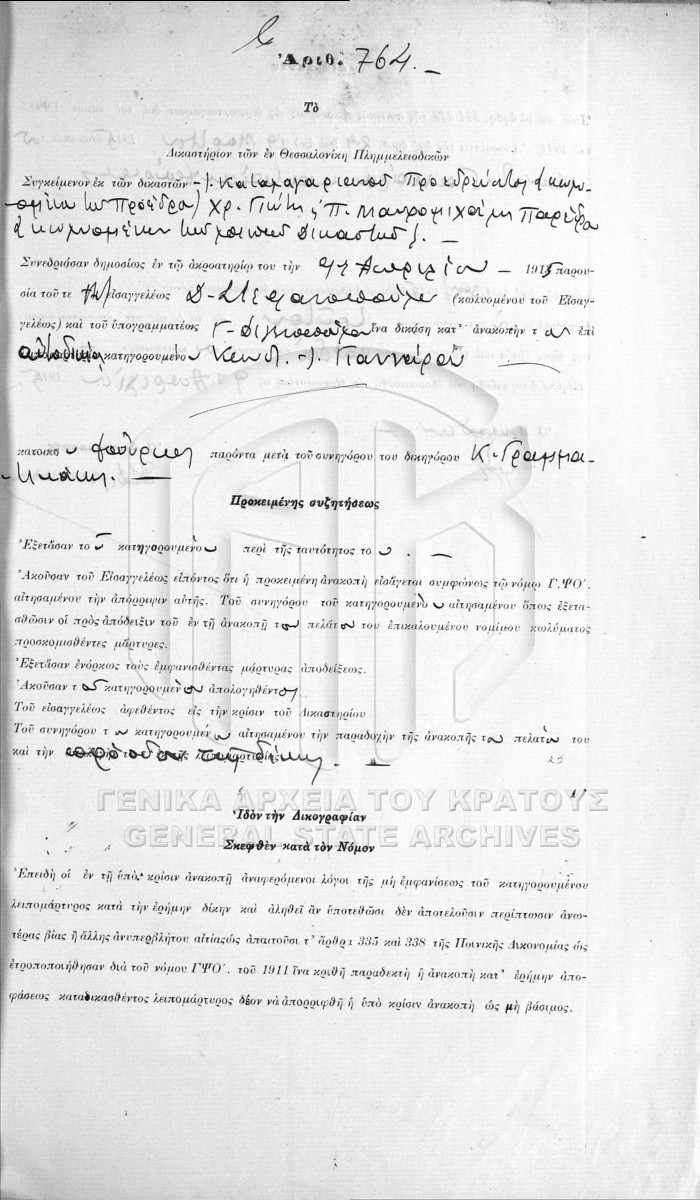 Ἀριθ. 764.
Τὸ
Δικαστήριον τῶν ἐν Θεσσαλονίκῃ Πλημμελειοδικῶν
Συγκείμενον ἐκ τῶν δικαστῶν Προεδρεύοντος
Προέδρου) χρ. Γιώτη Παρέδρου
Συνεδριάσαν δημοσίως ἐν τῷ ἀκροατηρίῳ του τὴν Ἀπριλίου 1915 παρου-
σίᾳ τοῦ τε εἰσαγγελέως (κωλυομένου τοῦ Εἰσαγ-
γελέως) καὶ τοῦ ὑπογραμματέως ἵνα δικάσῃ κατ' ἀνακοπὴν τ ἐπὶ
κατηγορουμένο
κατοικο παρόντα μετὰ τοῦ συνηγόρου του δικηγόρου Κ. Γραμμα-
Προκειμένης συζητήσεως
Ἐξετάσαν το κατηγορουμενο περὶ τῆς ταυτότητος το υ.
Ἀκοῦσαν τοῦ Εἰσαγγελέως εἰπόντος ὅτι ἡ προκειμένη ἀνακοπὴ εἰσάγεται συμφώνως τῷ νόμῳ Γ.ΨΟ΄.
αἰτησαμένου τὴν ἀπόρριψιν αὐτῆς. Τοῦ συνηγόρου τοῦ κατηγορουμένο υ αἰτησαμένου ὅπως ἐξετα-
σθῶσιν οἱ πρὸς ἀπόδειξιν τοῦ ἐν τῇ ἀνακοπῇ το πελάτο του ἐπικαλουμένου νομίμου κωλύματος
προσκομισθέντες μάρτυρες.
Ἐξετάσαν ἐνόρκως τοὺς ἐμφανισθέντας μάρτυρας ἀποδείξεως.
Ἀκοῦσαν τ κατηγορουμέν ἀπολογηθέντο
Τοῦ εἰσαγγελέως ἀφεθέντος εἰς τὴν κρίσιν τοῦ Δικαστηρίου
Τοῦ συνηγόρου τ κατηγορουμέν αἰτησαμένου τὴν παραδοχὴν τῆς ἀνακοπῆς το πελάτο του
καὶ τὴν πρόοδον τῆς δίκης.
Ἰδὸν τὴν Δικογραφίαν
Σκεφθὲν κατὰ τὸν Νόμον
Ἐπειδὴ οἱ ἐν τῇ ὑπὸ κρίσιν ἀνακοπῇ ἀναφερόμενοι λόγοι τῆς μὴ ἐμφανίσεως τοῦ κατηγορουμένου
λειπομάρτυρος κατὰ τὴν ἐρήμην δίκην καὶ ἀληθεῖ ἂν ὑποτεθῶσι δὲν ἀποτελοῦσιν περίπτωσιν ἀνω-
τέρας βίας ἢ ἄλλης ἀνυπερβλήτου αἰτίας ὡς ἀπαιτοῦσι τ' ἄρθρ 335 καὶ 338 τῆς Ποινικῆς Δικονομίας ὡς
ἐτροποποιήθησαν διὰ τοῦ νόμου ΓΨΟ΄. τοῦ 1911 ἵνα κριθῇ παραδεκτὴ ἡ ἀνακοπὴ κατ' ἐρήμην ἀπο-
φάσεως καταδικασθέντος λειπομάρτυρος δέον νὰ ἀπορριφθῇ ἡ ὑπὸ κρίσιν ἀνακοπὴ ὡς μὴ βάσιμος.
ΓΕΝΙΚΑ ΑΡΧΕΙΑ ΤΟΥ ΚΡΑΤΟΥΣ
GENERAL STATE ARCHIVES